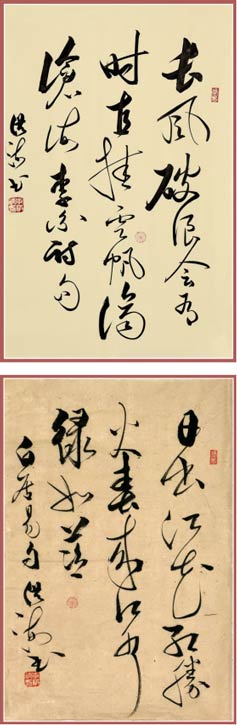 长风破浪会有
时直挂云帆济
沧海 李白诗句
书
日出江花红胜
火春来江水
绿如蓝
白居易句
书